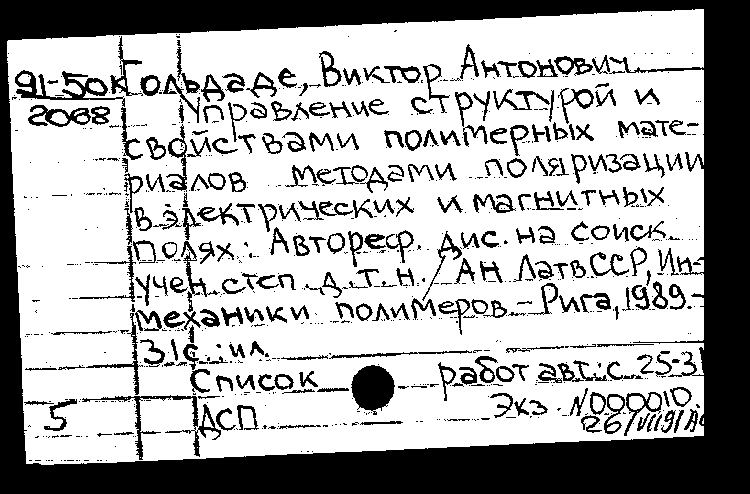 91-50к Гольдаде, Виктор Антонович.
2068 Управление структурой и
свойствами полимерных мате-
риалов методами поляризации
в электрических и магнитных
полях: Автореф. дис. на соиск.
учен. степ. д.т.н. / АН ЛатвССР, Ин-
механики полимеров. - Рига, 1989. -
31с.: ил.
Список работ авт.: с. 25-31
5 ДСП. Экз. N000010.
26/VII91